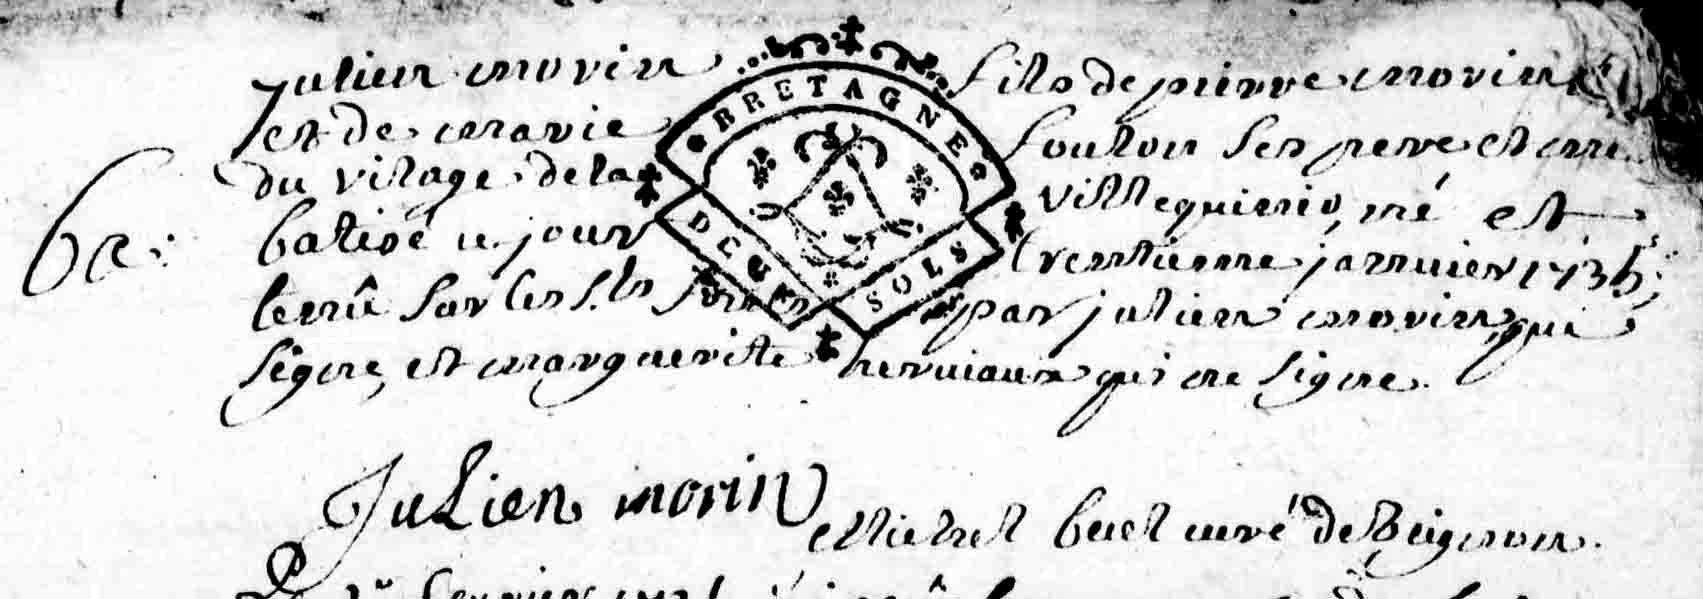 julien morin fils de pierre morin
et de marie soulou ses pere et mere
du vilage de la villequienio, né et
ba: batisé ce jour trentienne janvier 1735;
tenû sur les s.ts par julien morin, qui
signe, et marguerite herviaux qui ne signe.
BRETAGNE
DEUX SOLS
Julien morin
Michel buel curé de